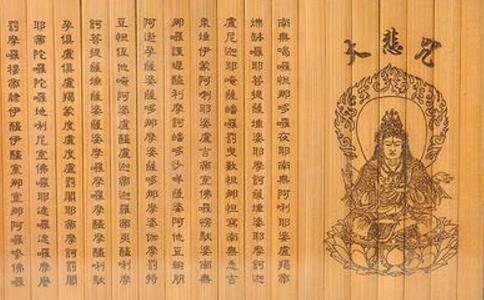 大悲咒
南無喝囉怛那哆囉夜耶南無阿唎耶婆盧羯帝
爍缽囉耶菩提薩埵婆耶摩訶薩埵婆耶摩訶迦
盧尼迦耶唵皤囉罰曳數怛那怛寫南無悉吉
栗埵伊蒙阿唎耶婆盧吉帝室佛囉楞馱婆南無
那囉謹墀醯利摩訶皤哆沙咩薩婆阿他豆輸朋
阿逝孕薩婆薩哆那摩婆薩哆那摩婆伽摩罰特
豆怛侄他唵阿婆盧醯盧迦帝迦羅帝夷醯唎摩
訶菩提薩埵薩婆薩婆摩囉摩囉摩醯摩醯唎馱
孕俱盧俱盧羯蒙度盧度盧罰闍耶帝摩訶罰闍
耶帝陀囉陀囉地唎尼室佛囉耶遮囉遮囉摩麼
罰摩囉穆帝隸伊醯伊醯室那室那阿囉參佛囉